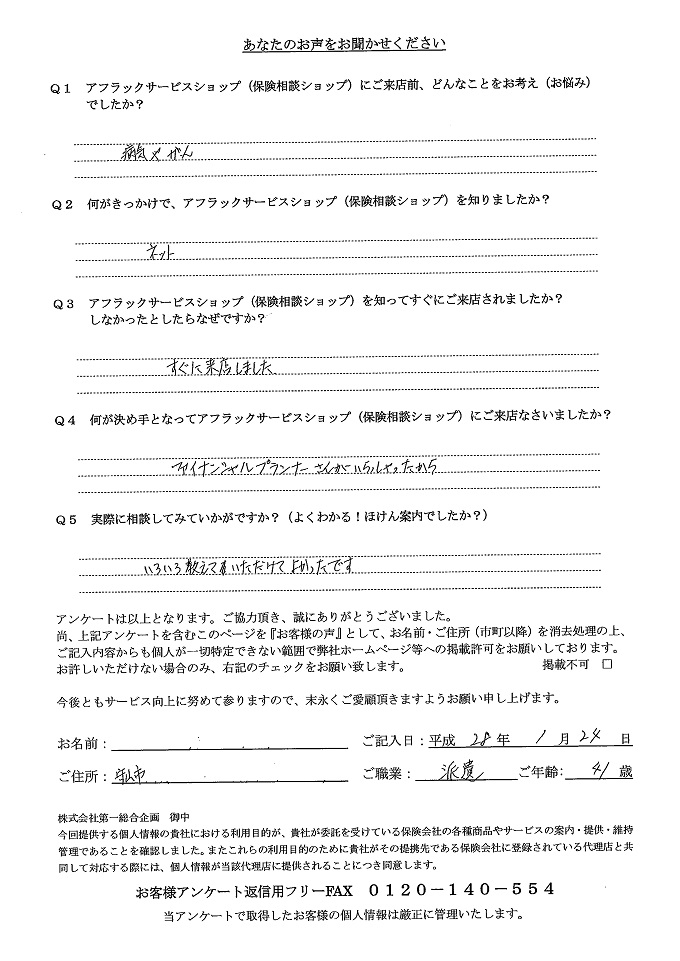 あなたのお声をお聞かせください
Q１　アフラックサービスショップ（保険相談ショップ）にご来店前、どんなことをお考え（お悩み）
でしたか？
病気やがん
Q２　何がきっかけで、アフラックサービスショップ（保険相談ショップ）を知りましたか？
ネット
Q３　アフラックサービスショップ（保険相談ショップ）を知ってすぐにご来店されましたか？
しなかったとしたらなぜですか？
すぐに来店しました
Q４　何が決め手となってアフラックサービスショップ（保険相談ショップ）にご来店なさいましたか？
ファイナンシャルプランナーさんがいらっしゃったから
Q５　実際に相談してみていかがですか？（よくわかる！ほけん案内でしたか？）
いろいろ教えていただけてよかったです
アンケートは以上となります。ご協力頂き、誠にありがとうございました。
尚、上記アンケートを含むこのページを『お客様の声』として、お名前・ご住所（市町以降）を消去処理の上、
ご記入内容からも個人が一切特定できない範囲で弊社ホームページ等への掲載許可をお願いしております。
お許しいただけない場合のみ、右記のチェックをお願い致します。　掲載不可 □
今後ともサービス向上に努めて参りますので、末永くご愛顧頂きますようお願い申し上げます。
お名前：　ご記入日：平成 28 年 1 月 24 日
ご住所：守山市　ご職業：派遣　ご年齢：41 歳
株式会社第一総合企画　御中
今回提供する個人情報の貴社における利用目的が、貴社が委託を受けている保険会社の各種商品やサービスの案内・提供・維持
管理であることを確認しました。またこれらの利用目的のために貴社がその提携先である保険会社に登録されている代理店と共
同して対応する際には、個人情報が当該代理店に提供されることにつき同意します。
お客様アンケート返信用フリーFAX　０１２０－１４０－５５４
当アンケートで取得したお客様の個人情報は厳正に管理いたします。